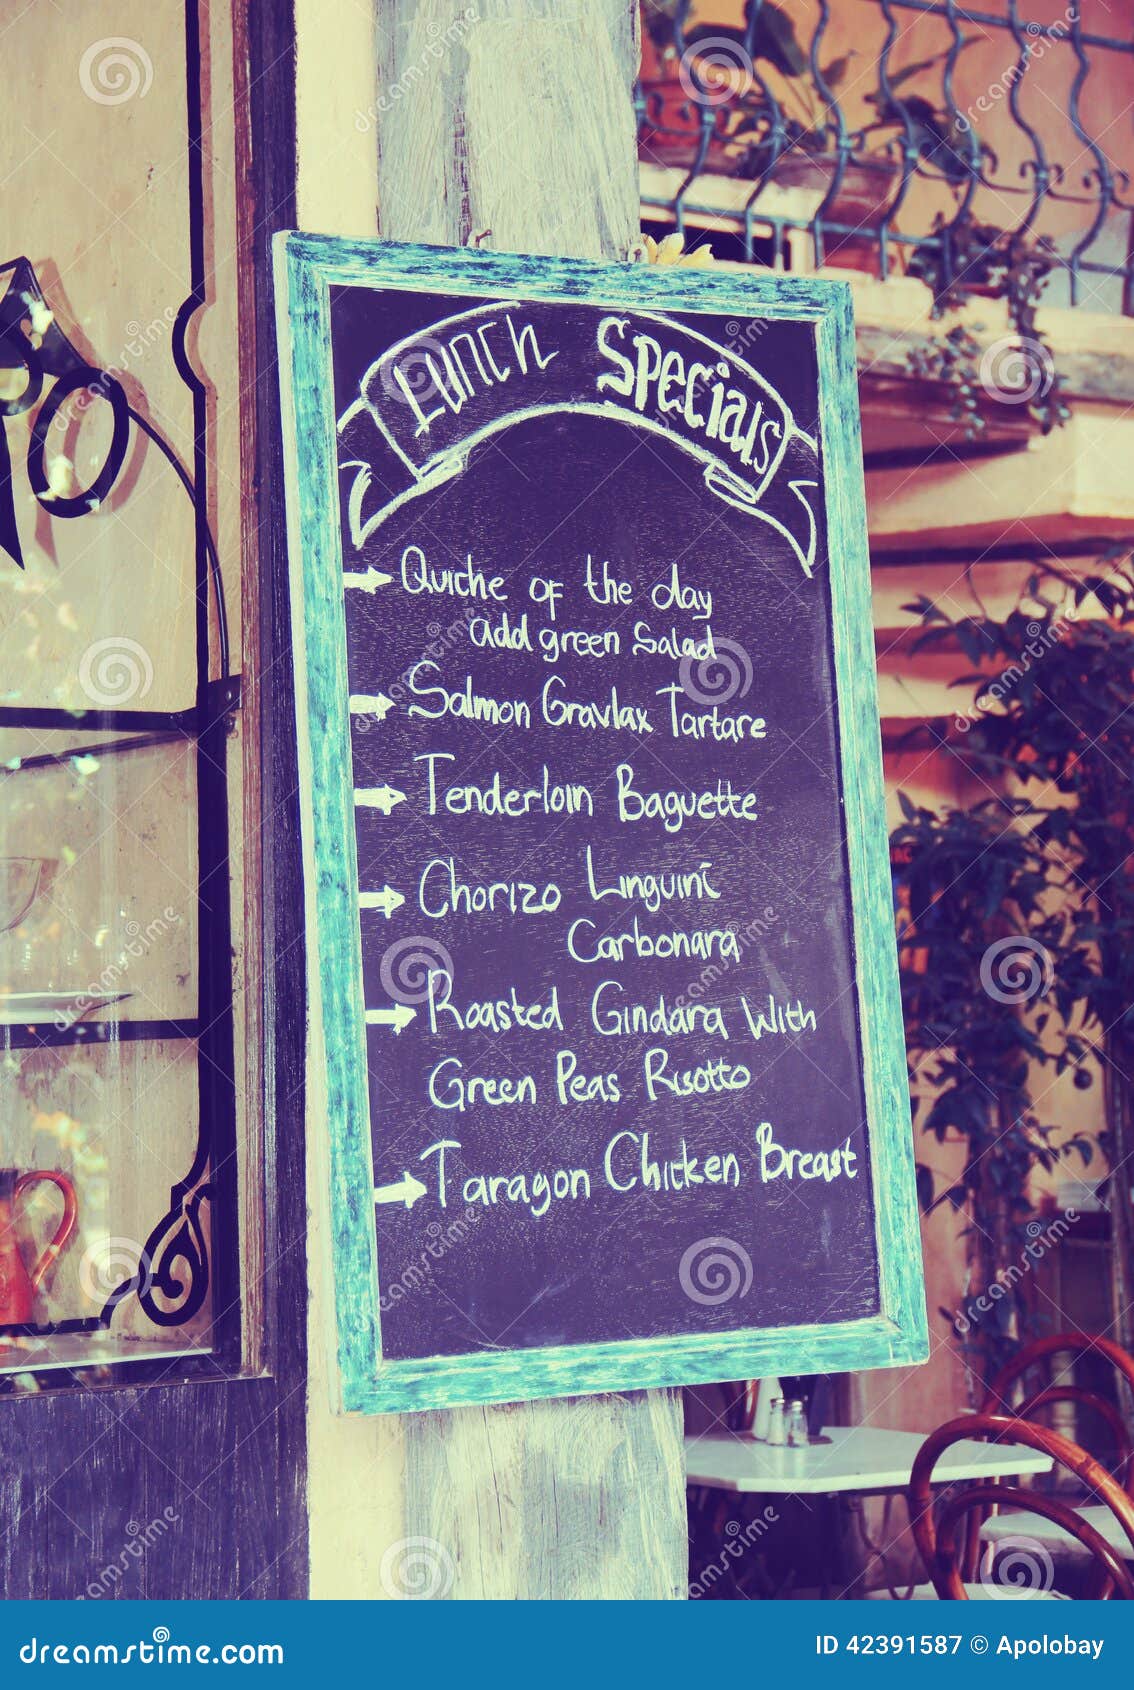 Lunch Specials
Quiche of the day
add green Salad
Salmon Gravlax Tartare
Tenderloin Baguette
Chorizo Linguini
Carbonara
Roasted Gindara With
Green Peas Risotto
Taragon Chicken Breast
dreamstime.com
ID 42391587 © Apolobay